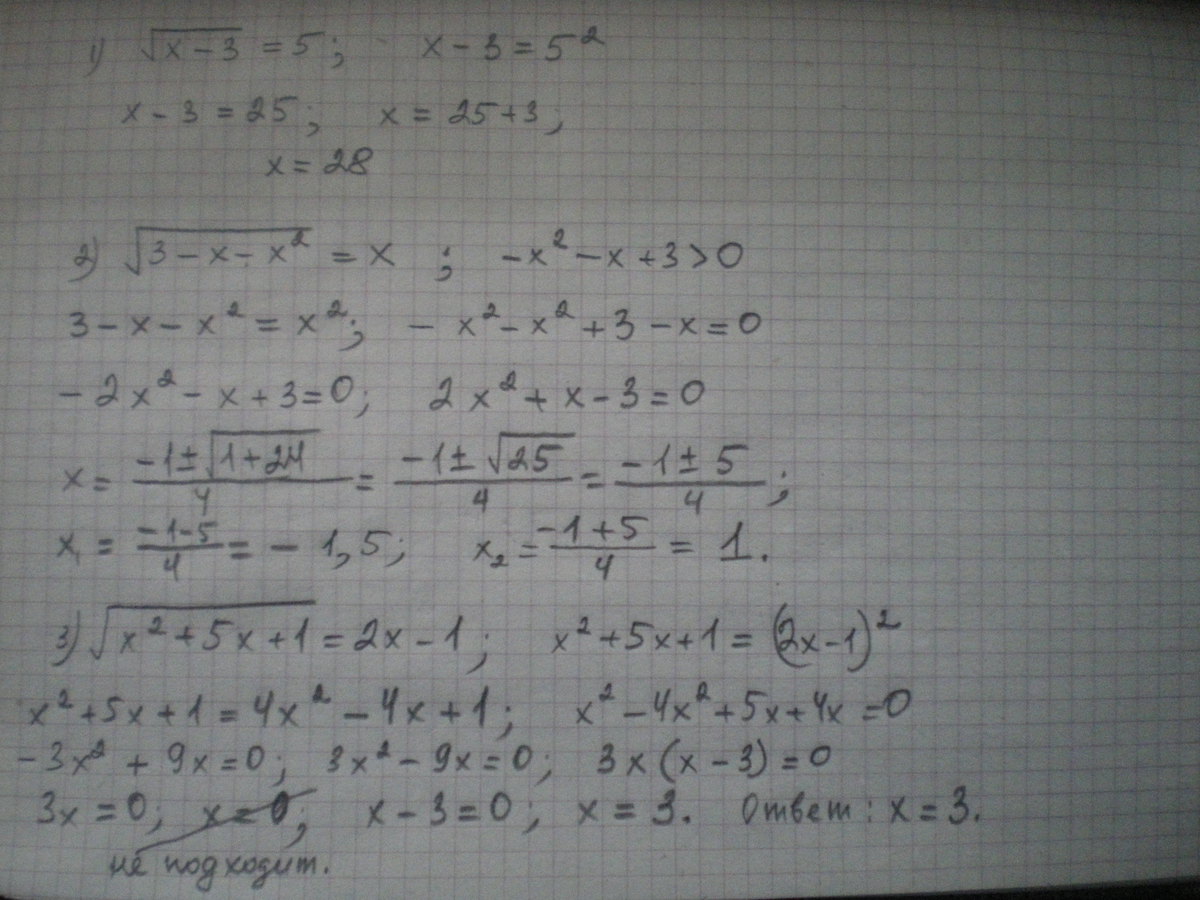 1) √(x-3) = 5; x - 3 = 5²
x - 3 = 25; x = 25+3;
x = 28
2) √(3 - x - x²) = x ; -x² - x + 3 > 0
3 - x - x² = x²; - x² - x² + 3 - x = 0
- 2x² - x + 3 = 0; 2x² + x - 3 = 0
x = (-1 ± √(1+24))/4 = (-1 ± √25)/4 = (-1 ± 5)/4 ;
x₁ = (-1-5)/4 = - 1,5; x₂ = (-1+5)/4 = 1.
3) √(x² + 5x + 1) = 2x - 1 ; x² + 5x + 1 = (2x - 1)²
x² + 5x + 1 = 4x² - 4x + 1; x² - 4x² + 5x + 4x = 0
-3x² + 9x = 0; 3x² - 9x = 0; 3x(x - 3) = 0
3x = 0; x = 0; x - 3 = 0; x = 3. Ответ: x = 3.
не подходит.